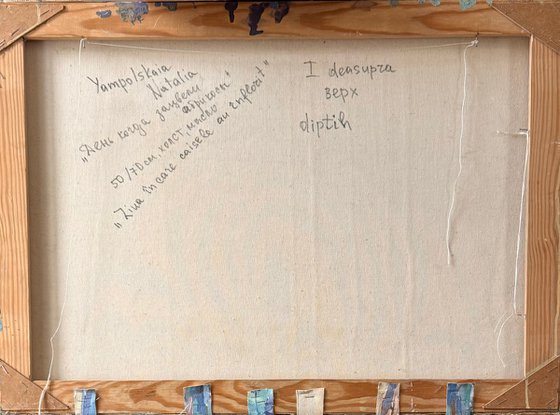 Yampolskaia
Natalia
„День когда зацвели
абрикосы"
50/70см, холст, масло
„Ziua în care caisele au înflorit"
I deasupra
верх
diptih